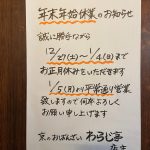 年末年始休業のお知らせ
誠に勝手ながら
12/27(土)〜1/4(日)まで
お正月休みをいただきます
1/5(月)より平常通り営業
致しますので何卒よろしく
お願い申し上げます
京のおばんざい わらじ亭
店主